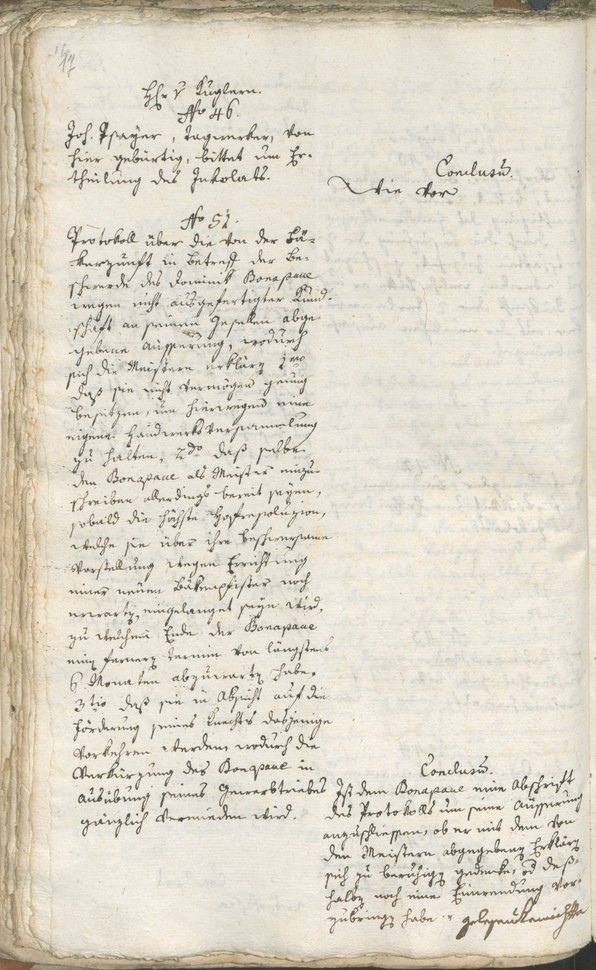 47
H. v Kuglern.
No 46.
Joh. Psayer, Tagwerker, von
hier gebürtig, bittet um Er-
theilung des Inkolats.
Conclusū.
Wie vor
No 51.
Protokoll über die von der Bä-
kerzunft in Betreff der Be-
schwerde des Dominik Bonapace
wegen nicht ausgefertigter Kund-
schaft an seinen Gesellen abge-
gebene Äusserung, wodurch
sich die Meistern erklärē 1mo
daß sie nicht Vermögen genug
besitzen, um hierwegen eine
eigene Handwerksversammlung
zu halten, 2do daß selbe
den Bonapace als Meister einzu-
schreiben allerdings bereit seyen,
sobald die höchste Hofresoluzion,
welche sie über ihre
Vorstellung wegen Errichtung
einer neuen Bäkenpfister noch
erwartē, eingelanget seyn wird,
zu welchem Ende der Bonapace
einē fernern Termin von längstens
6 Monaten abzuwartē habe,
3tio daß sie in Absicht auf die
Förderung seines Knechts dasjenige
vorkehren werden, wodurch die
Verkürzung des Bonapace in
Ausübung seines Gewerbtriebes
gänzlich vermieden wird.
Conclusū.
Ist dem Bonapace eine Abschrift
des Protokolls um seine Äusserung
anzuschliessen, ob er mit dem von
den Meistern abgegebenē Erklärē
sich zu beruhigē gedenke, od deß-
halbē noch eine Einwendung vor-
zubringē habe.